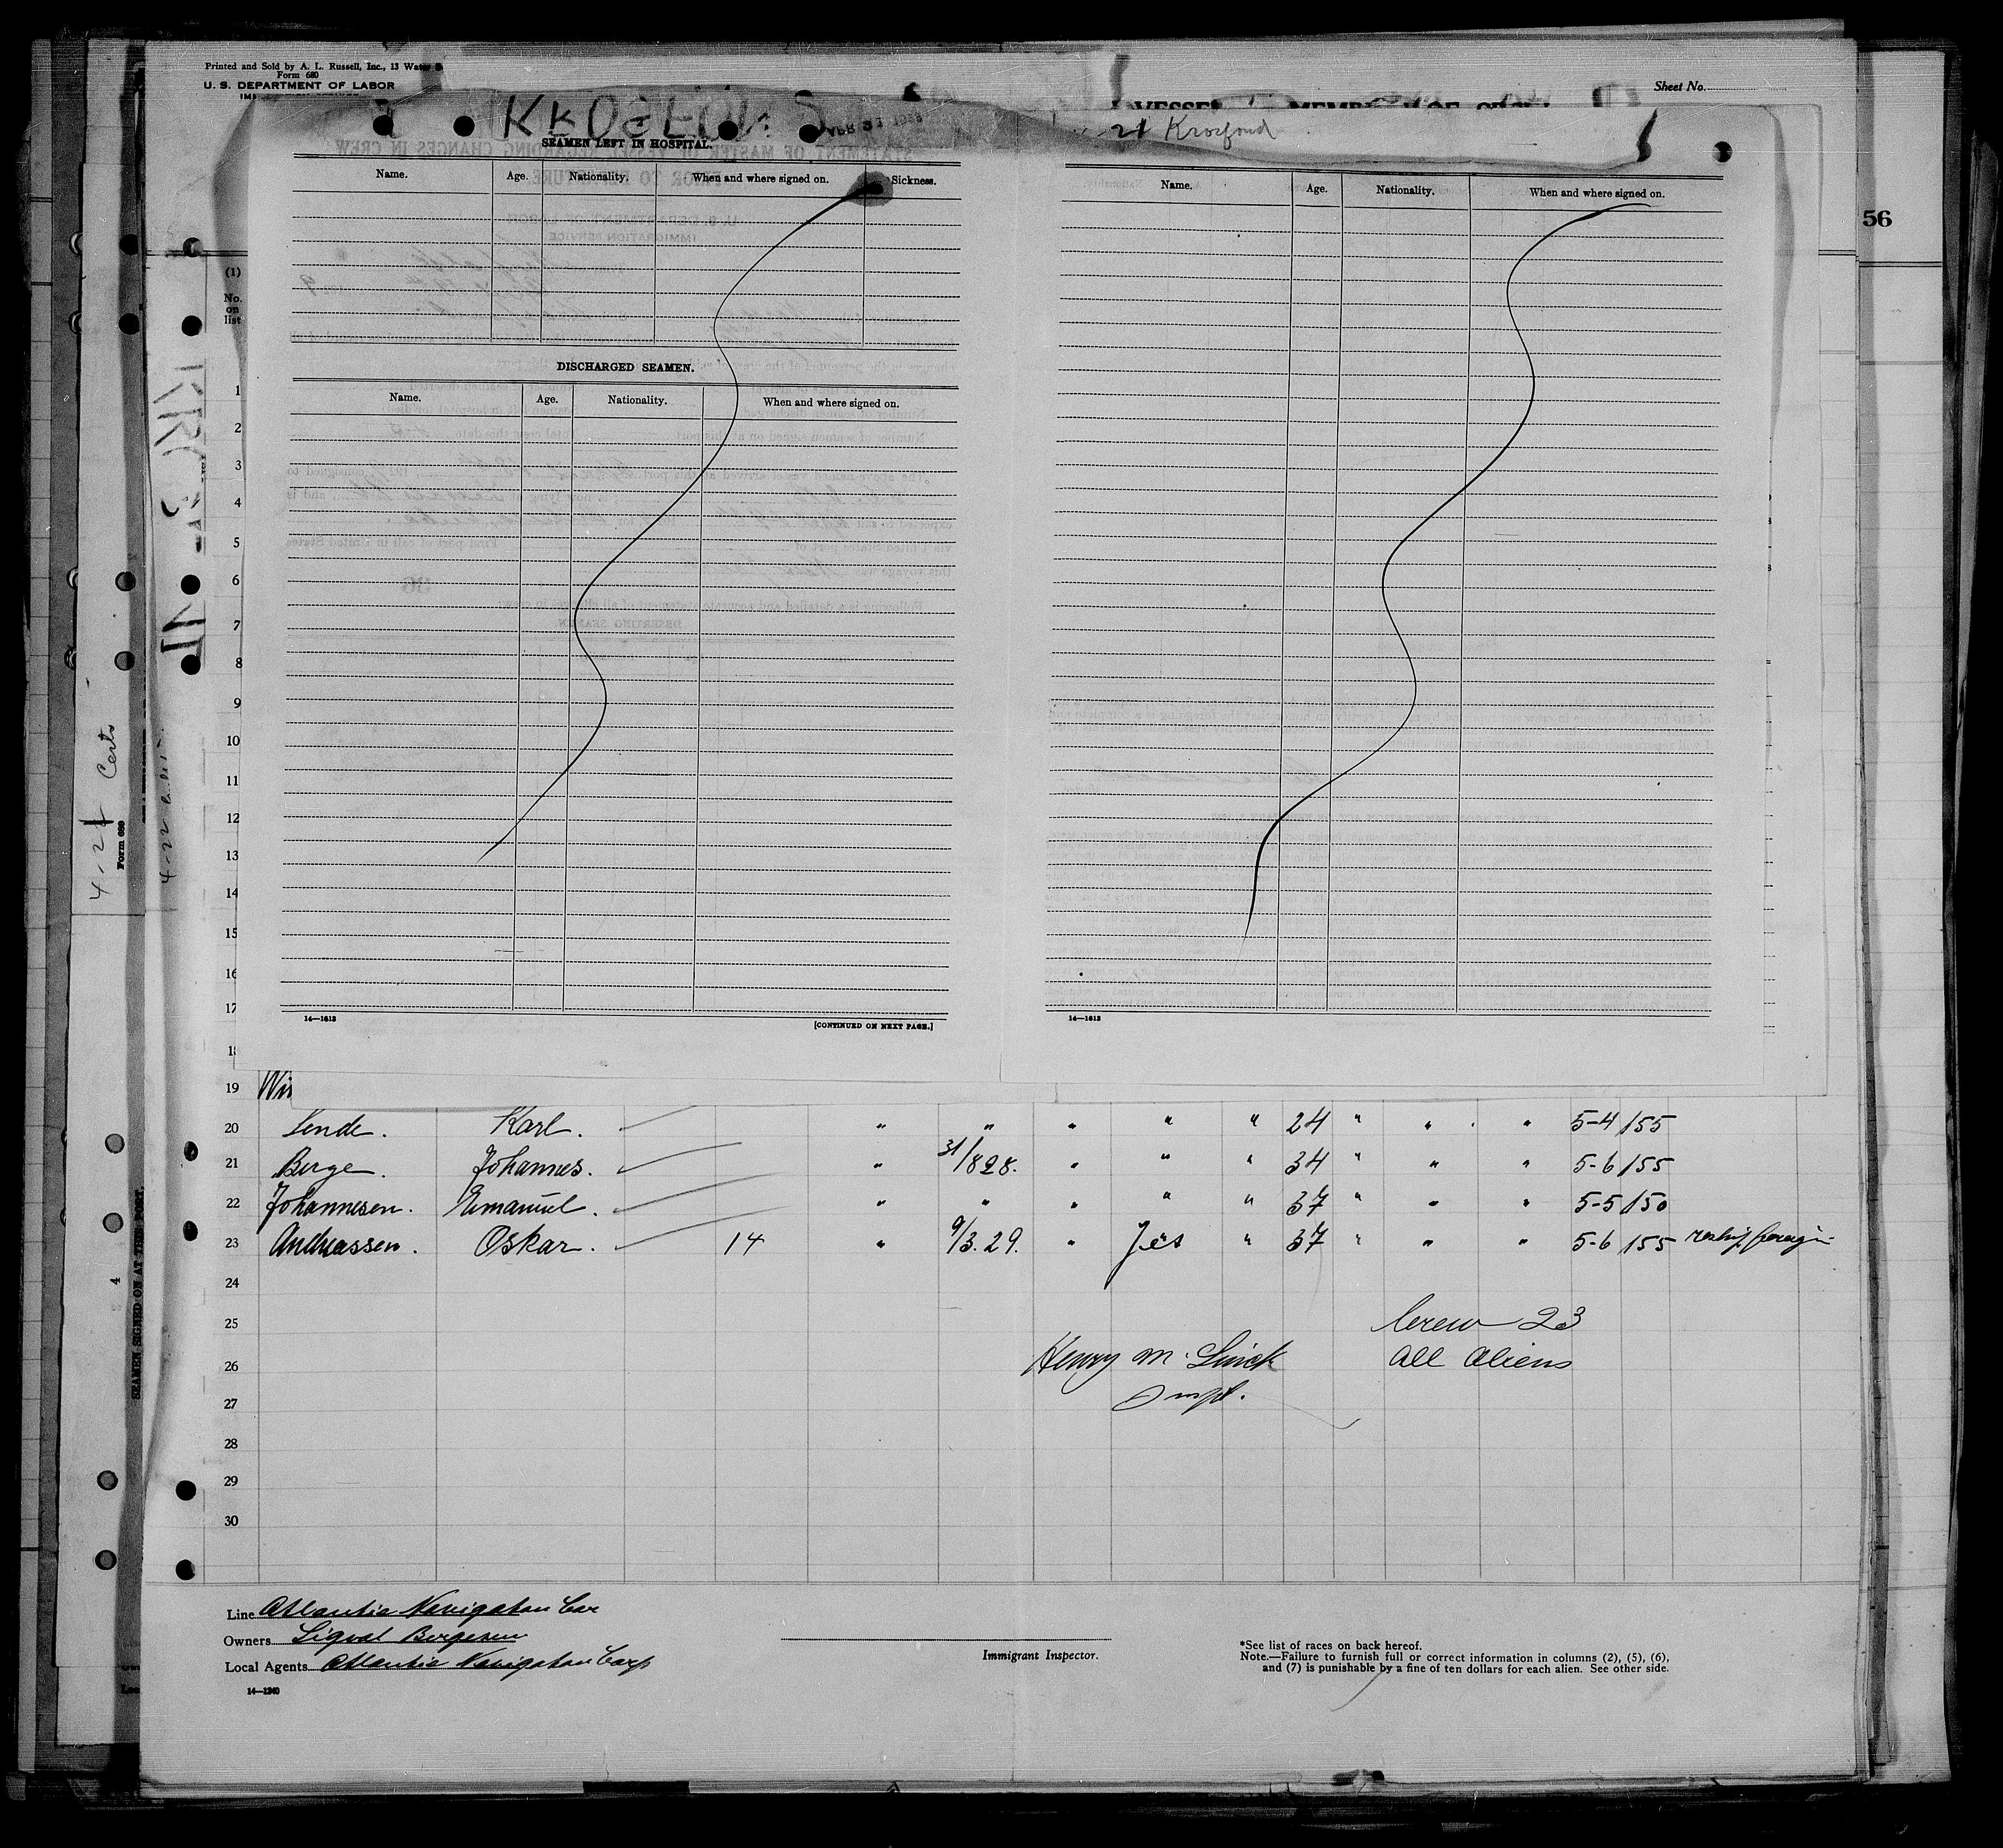 Printed and Sold by A. L. Russell, Inc., 13 Water
Form 680
U. S. DEPARTMENT OF LABOR
Sheet No.
VESSEL
56
21 Krosfond
SEAMEN LEFT IN HOSPITAL.
Name. Age. Nationality. When and where signed on. Sickness.
Name. Age. Nationality. When and where signed on.
DISCHARGED SEAMEN.
Name. Age. Nationality. When and where signed on.
(1)
No.
on
list
1
2
3
4
5
6
7
8
9
10
11
12
13
14
15
16
17
14—1613
[CONTINUED ON NEXT PAGE.]
14—1613
4-21 Certs
Form 689
SEAMEN SIGNED ON AT THIS PORT.
4
19 Win
20 Lende. Karl. " " " " " 24 " " " 5-4 155
21 Berge. Johannes. " 31/8 28. " " " 34 " " " 5-6 155
22 Johannesen. Emanuel. " " " " " 37 " " " 5-5 150
23 Andreassen. Oskar. 14 " 9/3.29. " Yes " 37 " " " 5-6 155 reship foreign
24
25 Crew 23
26 Henry M. Linck All Aliens
27 Inspt.
28
29
30
Line Atlantic Navigation Cor
Owners Sigval Bergesen
Local Agents Atlantic Navigation Corp
14—1240
Immigrant Inspector.
*See list of races on back hereof.
Note.—Failure to furnish full or correct information in columns (2), (5), (6),
and (7) is punishable by a fine of ten dollars for each alien. See other side.